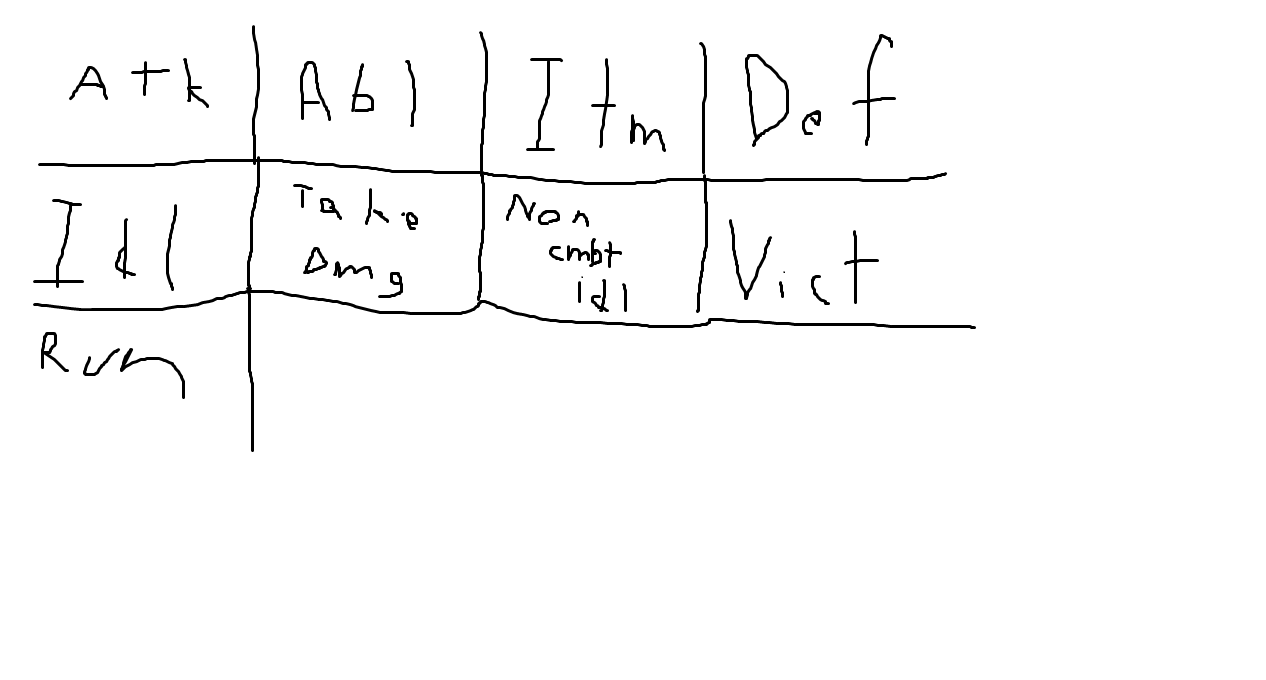 Atk Abl Itm Def
Idl Take Dmg Non cmbt idl Vict
Run